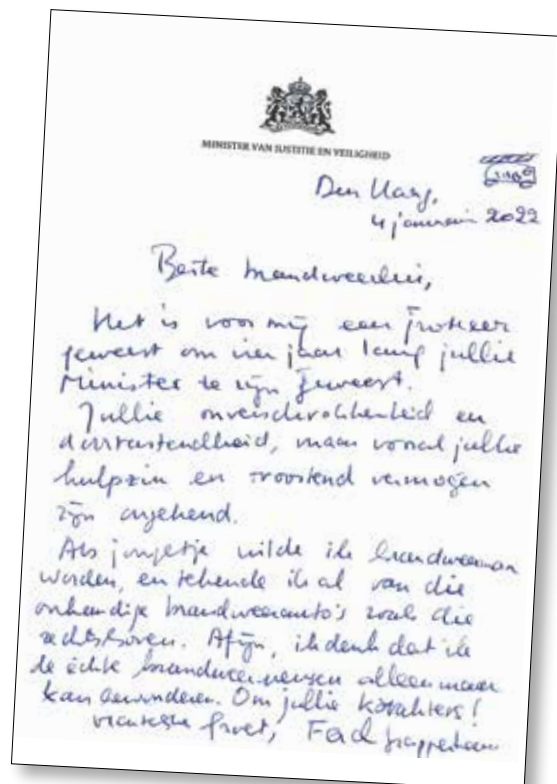 MINISTER VAN JUSTITIE EN VEILIGHEID
Den Haag,
4 januari 2022
Beste brandweerlui,
Het is voor mij een
geweest om vier jaar lang jullie
Minister te zijn geweest.
Jullie onverschrokkenheid en
doortastendheid, maar vooral jullie
hulpzin en troostend vermogen
zijn ongekend.
Als jongetje wilde ik brandweerman
worden, en tekende ik al van die
onhandige brandweerauto's zoals die
rechtsboven. Afijn, ik denk dat ik
de échte brandweermensen alleen maar
kan bewonderen. Om jullie karakters!
groet, Ferd Grapperhaus